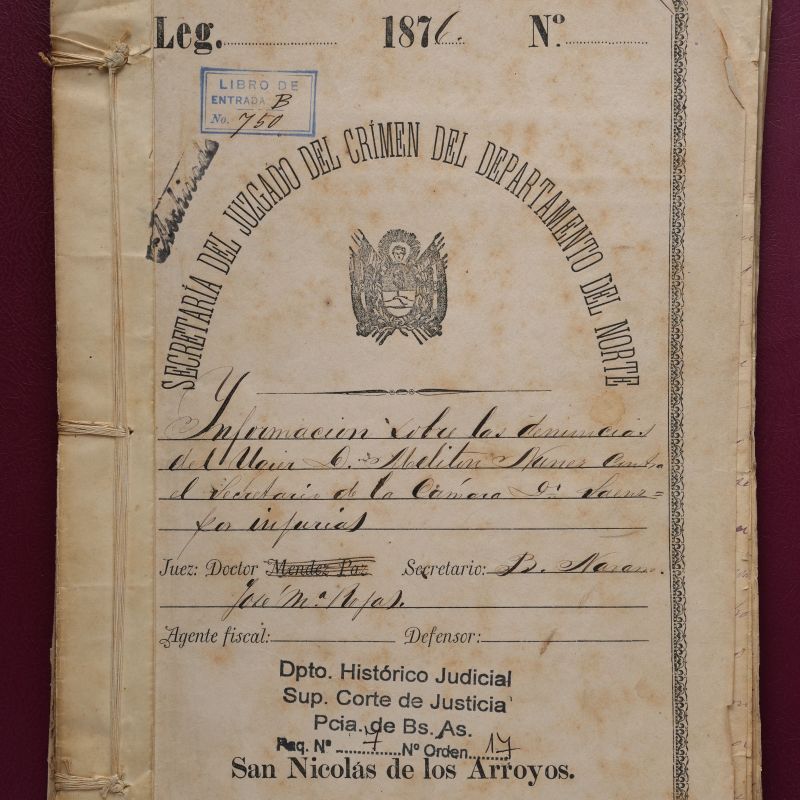 Leg. 1876. Nº
LIBRO DE
ENTRADA B
No. 750
Archivado
SECRETARÍA DEL JUZGADO DEL CRÍMEN DEL DEPARTAMENTO DEL NORTE
Ynformacion sobre las denuncias
del Ugier D. Meliton Nunez contra
el Secretario de la Cámara Dr. Saenz=
por injurias
Juez: Doctor Mendez Paz Secretario: B.
José Mª Rojas.
Agente fiscal: Defensor:
Dpto. Histórico Judicial
Sup. Corte de Justicia
Pcia. de Bs. As.
Paq. Nº 7 Nº Orden 17
San Nicolás de los Arroyos.